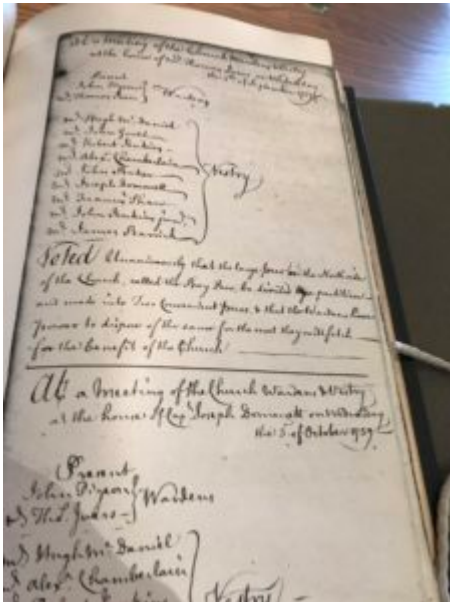 At a Meeting of the Church Wardens & Vestry
at the house of Mr Thomas on Wednesday
the of September 1759
Present
John
Mr Thomas Wardens
Mr Hugh McDaniel
Mr John Gould
Mr Robert Jenkins
Mr Alexr Chamberlain
Mr John
Mr Joseph Domett
Mr Francis Shaw
Mr John Jenkins junr
Mr James
Vestry
Voted Unanimously that the large Pew on the North side
of the Church, called the Bray Pew, be divided by a partition
and made into Two Convenient Pews, & that the Wardens have
power to dispose of the same for the most they will fetch
for the benefit of the Church
At a Meeting of the Church Wardens & Vestry
at the house of Capt Joseph Domett on Wednesday
the 3d of October 1759
Present
John
Mr Thos Wardens
Mr Hugh McDaniel
Mr Alexr Chamberlain
Mr Robert Jenkins
Vestry